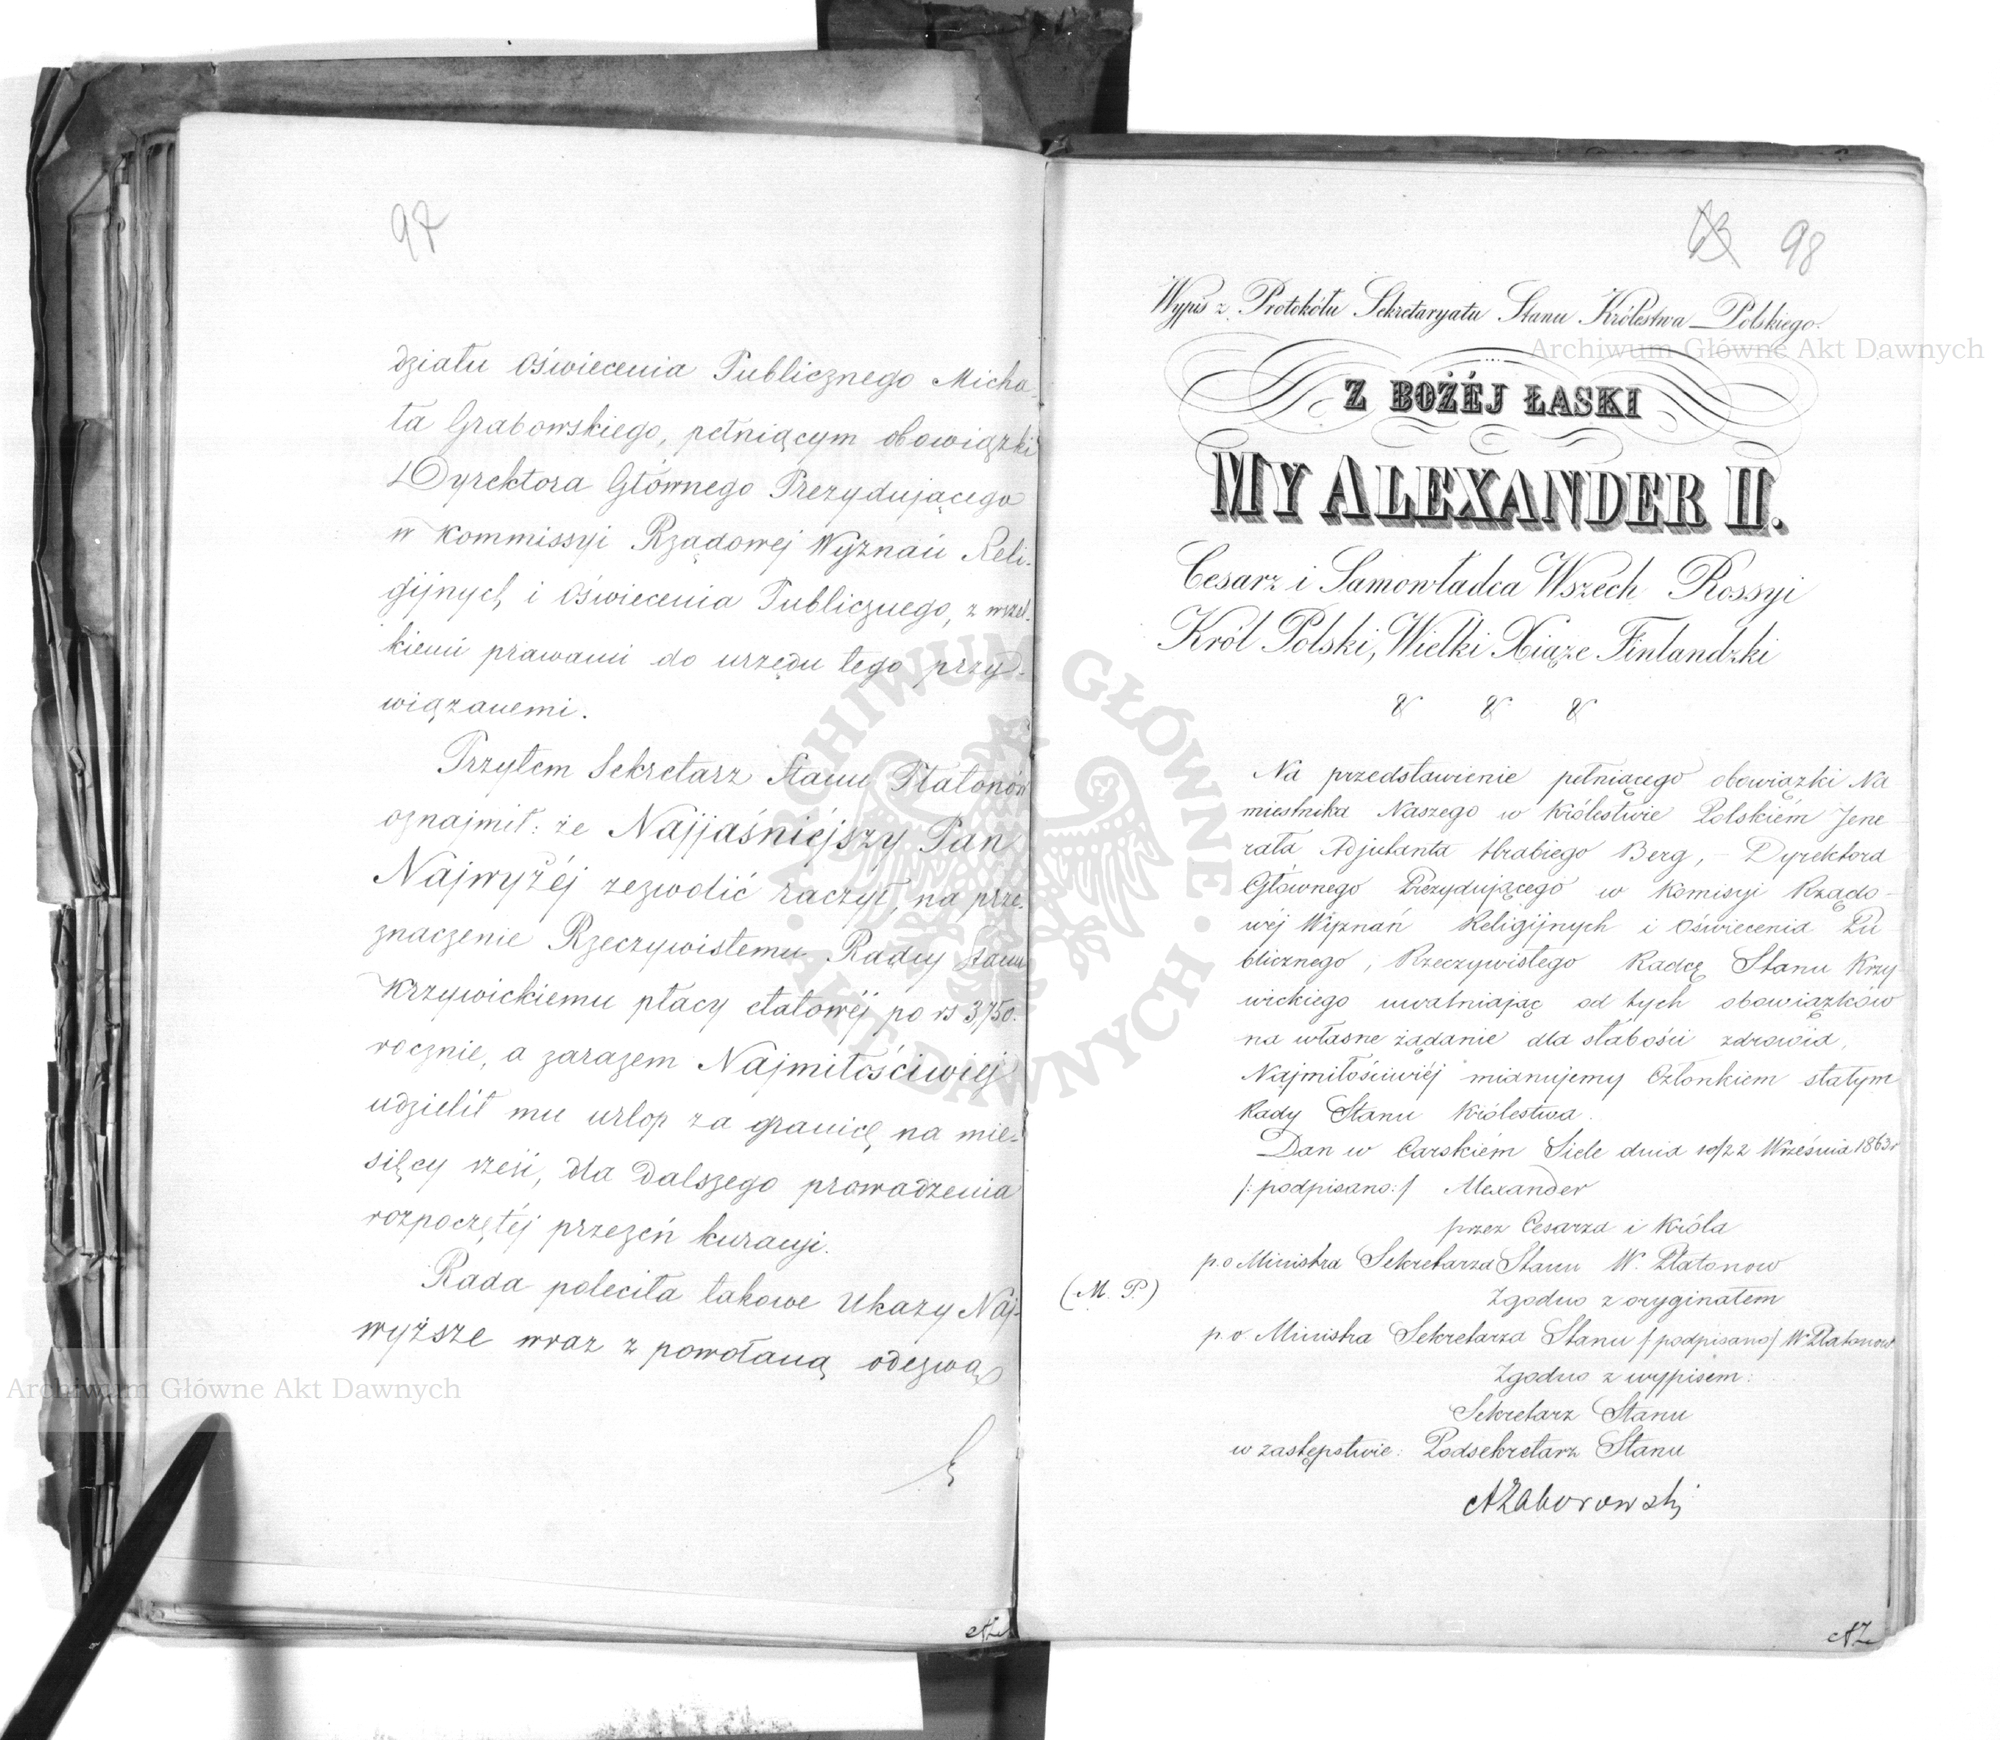 97
działu Oświecenia Publicznego Micha-
ła Grabowskiego, pełniącym obowiązki
Dyrektora Głównego Prezydującego
w Kommissyi Rządowej Wyznań Reli-
gijnych i Oświecenia Publicznego, z wszel-
kiemi prawami do urzędu tego przy-
wiązanemi.
Przytem Sekretarz Stanu Płatonów
oznajmił: że Najjaśniejszy Pan
Najwyżéj zezwolić raczył, na prze-
znaczenie Rzeczywistemu Radcy Stanu
Krzywickiemu płacy etatowéj po rs 3,750.
rocznie, a zarazem Najmiłościwiéj
udzielił mu urlop za granicę na mie-
sięcy sześć, dla dalszego prowadzenia
rozpoczętéj przezeń kuracyi.
Rada poleciła takowe Ukazy Naj-
wyższe wraz z powołaną odezwą
AZ
63 98
Wypis z Protokółu Sekretaryatu Stanu Królestwa Polskiego.
Z BOŻÉJ ŁASKI
MY ALEXANDER II.
Cesarz i Samowładca Wszech Rossyi
Król Polski, Wielki Xiąże Finlandzki
& & &
Na przedstawienie pełniącego obowiązki Na
miestnika Naszego w Królestwie Polskiém Jene
rała Adjutanta Hrabiego Berg, – Dyrektora
Głównego Prezydującego w Komisyi Rządo-
wéj Wyznań Religijnych i Oświecenia Pu
blicznego, Rzeczywistego Radcę Stanu Krzy
wickiego uwalniając od tych obowiązków
na własne żądanie dla słabości zdrowia,
Najmiłościwiéj mianujemy Członkiem stałym
Rady Stanu Królestwa.
Dan w Carskiém Siele dnia 10/22 Września 1863 r
/:podpisano:/ Alexander
przez Cesarza i Króla
p.o Ministra Sekretarza Stanu W. Płatonow
(M. P.)
Zgodno z oryginałem
p.o Ministra Sekretarza Stanu /podpisano/ W. Płatonow
Zgodno z wypisem:
Sekretarz Stanu
w zastępstwie: Podsekretarz Stanu
AZaborowski
AZ
Archiwum Główne Akt Dawnych
Archiwum Główne Akt Dawnych
ARCHIWUM GŁÓWNE
AKT DAWNYCH